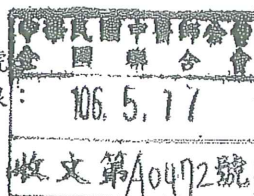 中華民國中醫師公會
全國聯合會
106. 5. 17
收文第A0472號